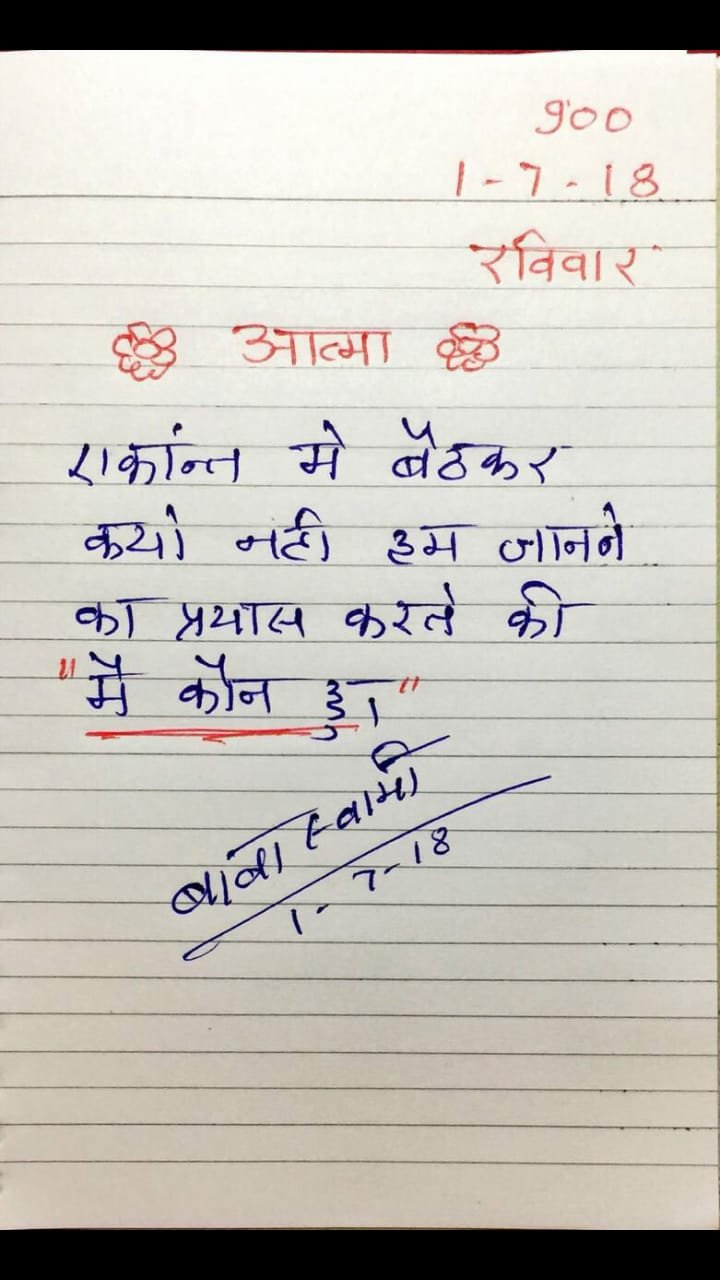 900
1-7-18
रविवार
आत्मा
एकांन्त मे बैठकर
कयो नही हम जानने
का प्रयास करते की
"मै कौन हु।"
बाबा स्वामी
1-7-18